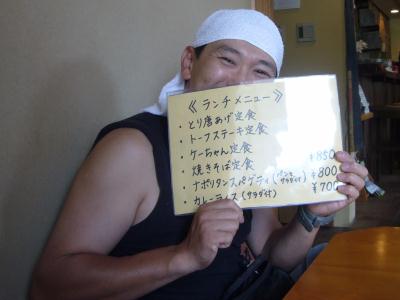 《ランチメニュー》
・とり唐あげ定食
・トーフステーキ定食
・ケーちゃん定食
・焼きそば定食 ¥850
・ナポリタンスパゲティ(サラダ付) ¥800
・カレーライス(サラダ付) ¥700